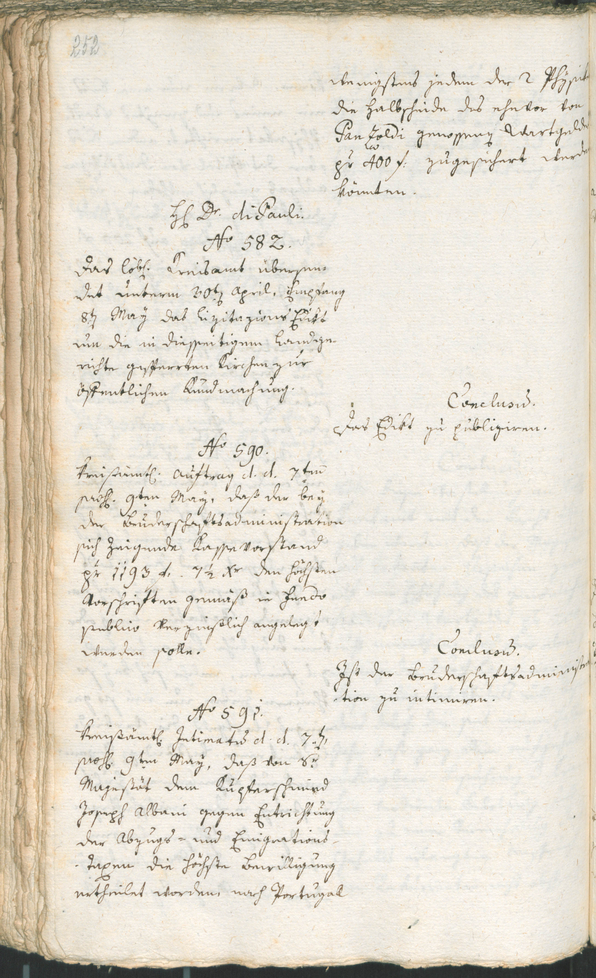 252
wenigstens jedem der 2 Physik
die Halbscheide des ehevor von
Panzoldi genossenen Wartgeldes
pr 400 f. zugesichert werde
könnten.
H. Dr. di Pauli.
No 582.
Das löbl. Kreisamt übersen-
det unterm 20ten April, Empfang
8ten May das Lizitazions Edikt
um die in diesseitigem Landge-
richte gesperrten Kirchen zur
öffentlichen Kundmachung.
Conclusum.
Das Edikt zu publiziren.
No 590.
Kreisämtl. Auftrag d. d. 7ten
praes. 9ten May, daß der bey
der Bruderschaftsadministration
sich zeigende Kasse vorstand
pr 1193 f. 7½ xr den höchsten
Vorschriften gemäß in fundo
publico verzinslich angelegt
werden solle.
Conclusum.
Ist der Bruderschaftsadminis
tion zu intimiren.
No 591.
Kreisämtl. Intimatum d. d. 7ten
praes. 9ten May, daß von Sr
Majestät dem Kupferschmid
Joseph Albani gegen Entrichtung
der Abzugs- und Emigrations-
-taxen die höchste Bewilligung
ertheilet worden, nach Portugall